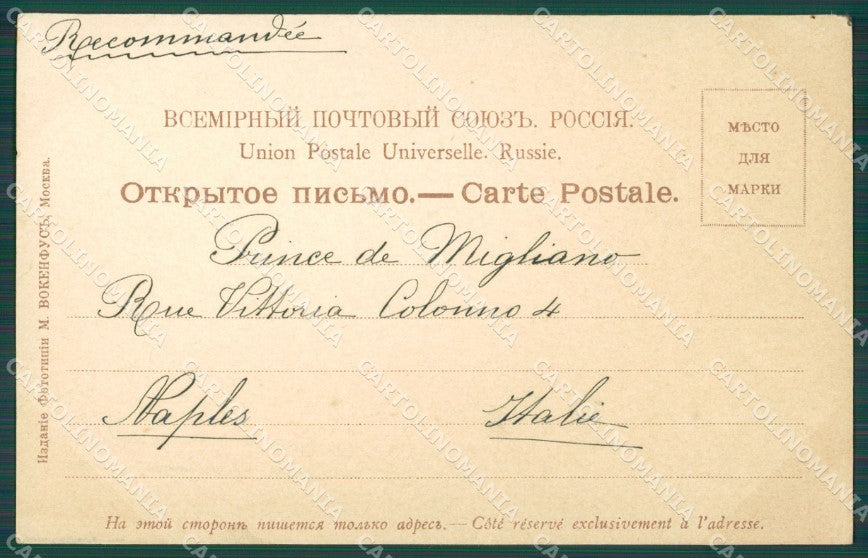 Recommandée
ВСЕМІРНЫЙ ПОЧТОВЫЙ СОЮЗЪ. РОССІЯ.
Union Postale Universelle. Russie.
Открытое письмо.— Carte Postale.
МѢСТО
ДЛЯ
МАРКИ
Prince de Migliano
Rue Vittoria Colonno 4
Naples Italie
На этой сторонѣ пишется только адресъ.— Côté réservé exclusivement à l'adresse.
Изданіе Фототипіи М. ВОКЕНФУСЪ, Москва.
CARTOLINOMANIA